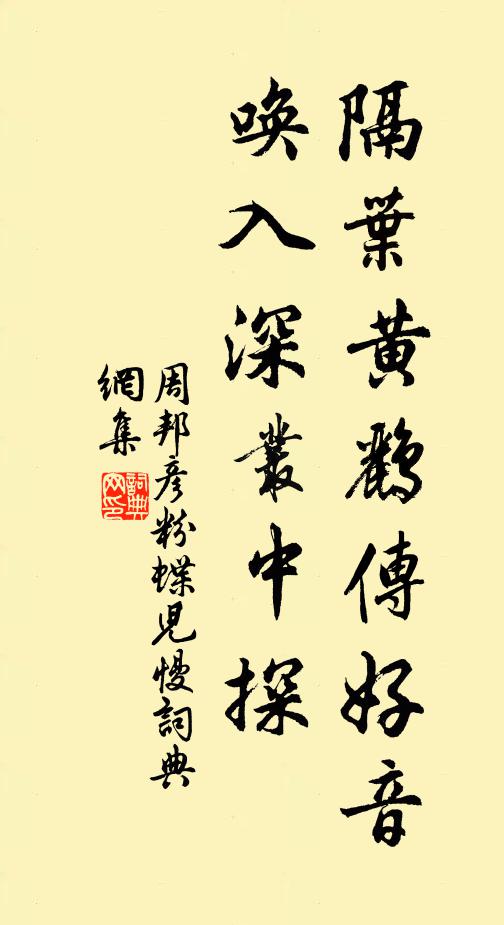 隔葉黃鸝傳好音
喚入深叢中探
周邦彥粉蝶兒慢詞典
網集
詞典
网印